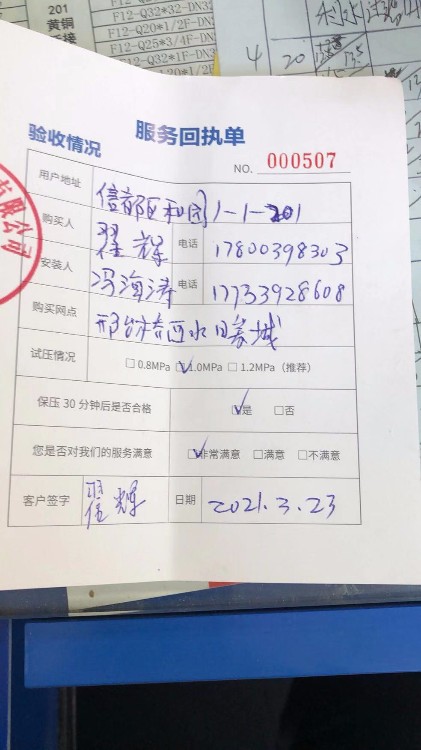 201
黄铜
F12-Q32*32-DN32
F12-Q20*1/2F-DN
F12-Q25*3/4F-DN
F12-Q32*1F-DN32
4 20
服务回执单
验收情况
NO. 000507
用户地址 信都区和园1-1-201
购买人 翟辉 电话 17800398303
安装人 冯海涛 电话 17733928608
购买网点
试压情况 □ 0.8MPa □ 1.0MPa □ 1.2MPa（推荐）
保压 30 分钟后是否合格 □是 □否
您是否对我们的服务满意 □非常满意 □满意 □不满意
客户签字 翟辉 日期 2021.3.23
限公司